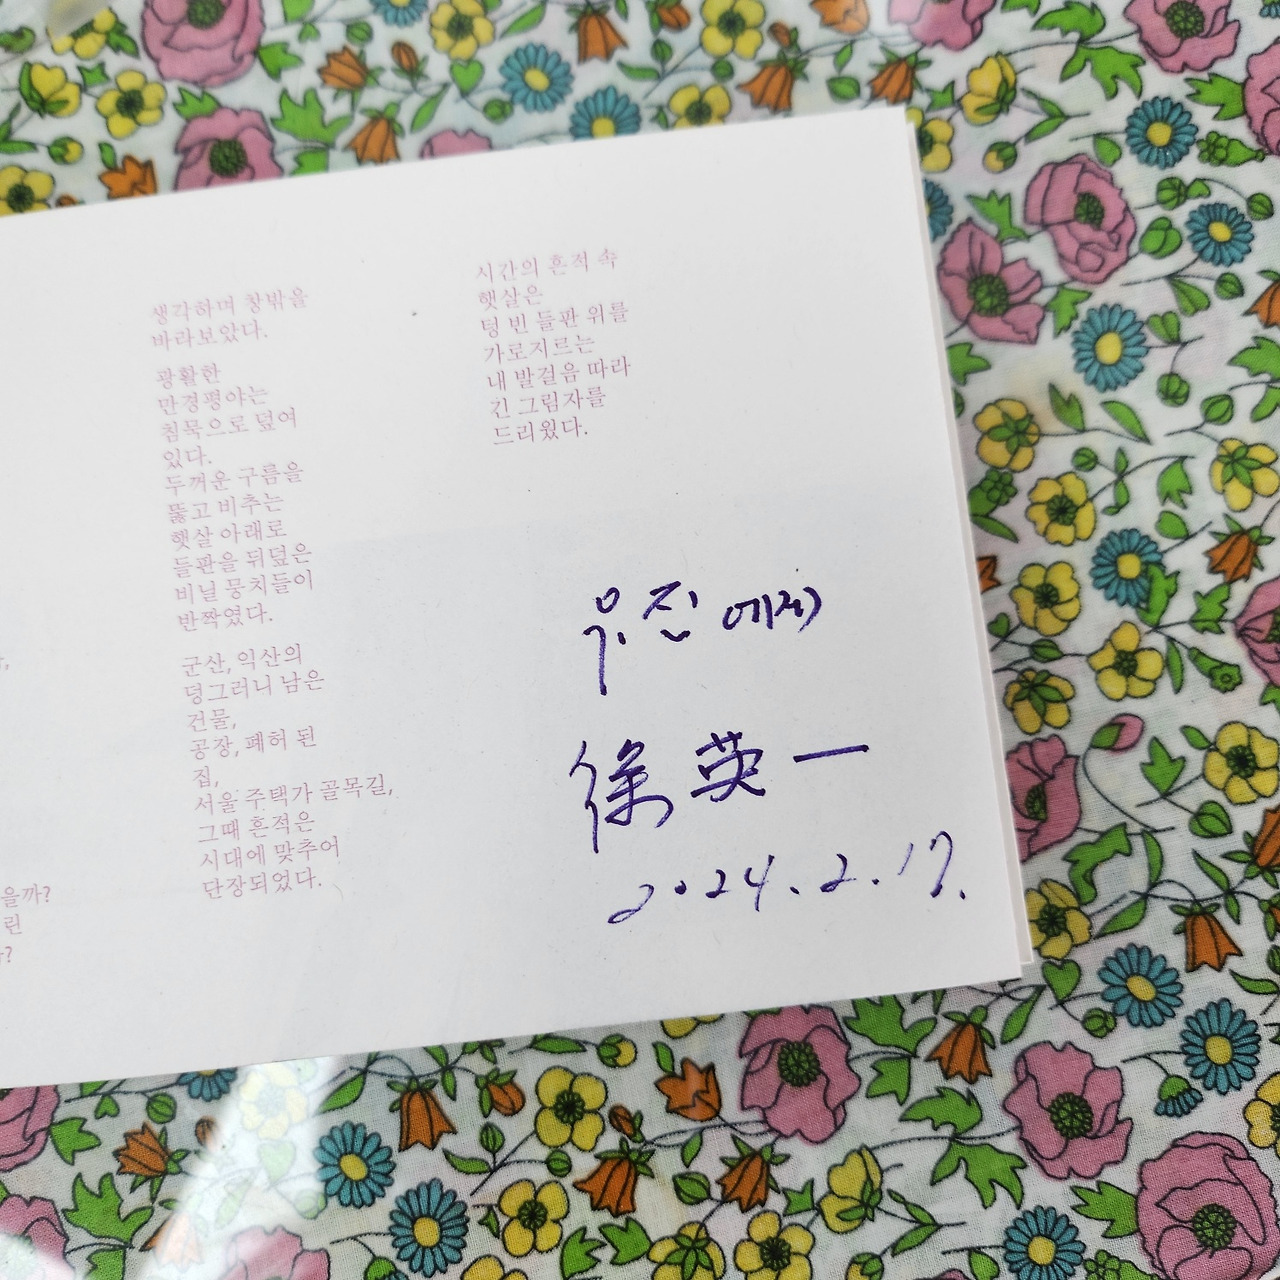 을까?
린
생각하며 창밖을
바라보았다.
광활한
만경평야는
침묵으로 덮여
있다.
두꺼운 구름을
뚫고 비추는
햇살 아래로
들판을 뒤덮은
비닐 뭉치들이
반짝였다.
군산, 익산의
덩그러니 남은
건물,
공장, 폐허 된
집,
서울 주택가 골목길,
그때 흔적은
시대에 맞추어
단장되었다.
시간의 흔적 속
햇살은
텅 빈 들판 위를
가로지르는
내 발걸음 따라
긴 그림자를
드리웠다.
우진에게
徐英一
2024.2.17.